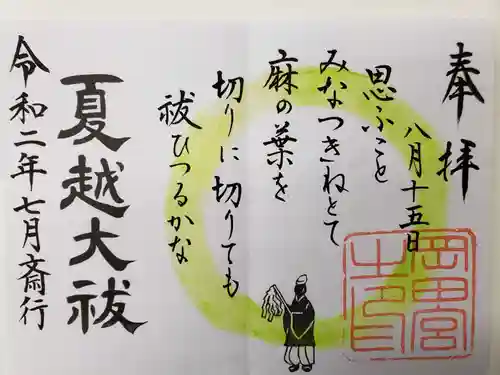 奉拝
八月十五日
思ふこと
みなつきねとて
麻の葉を
切りに切りても
祓ひつるかな
夏越大祓
令和二年七月斎行